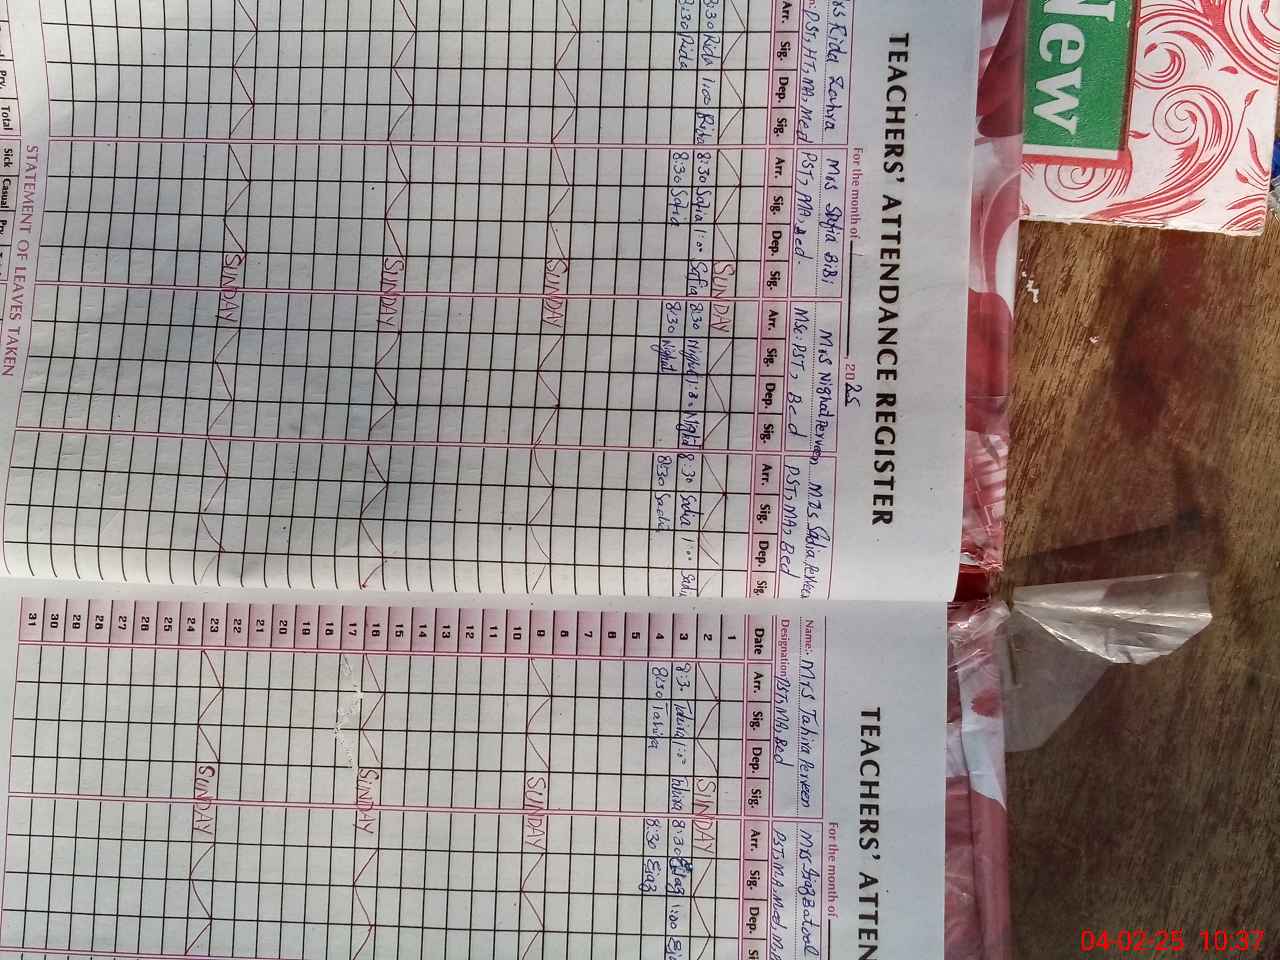 New
TEACHERS' ATTENDANCE REGISTER
For the month of , 2025
Rida Zahra Mrs Safia BiBi Mrs Nighat Perveen Mrs Sadia Perveen
PST, HT, MA, Med PST, MA, Bed. MSc: PST, Bed PST, MA, Bed
Arr. Sig. Dep. Sig. Arr. Sig. Dep. Sig. Arr. Sig. Dep. Sig. Arr. Sig. Dep. Sig.
SUNDAY
8:30 Rida 1:00 Rida 8:30 Safia 1:00 Safia 8:30 Nighat 1:30 Nighat 8:30 Sadia 1:00
8:30 Rida 8:30 Safia 8:30 Nighat 8:30 Sadia
SUNDAY
SUNDAY
SUNDAY
STATEMENT OF LEAVES TAKEN
Prv. Total Sick Casual Prv.
TEACHERS' ATTEN
For the month of
Name:- Mrs Tahira Perveen Mrs Ejaz Batool
Designation PST, MA, Bed PST, M.A, Med,
Date Arr. Sig. Dep. Sig. Arr. Sig. Dep.
1
2 SUNDAY
3 8:3 Tahira 1:00 Tahira 8:30 Ejaz 1:00
4 8:30 Tahira 8:30 Ejaz
5
6
7
8
9 SUNDAY
10
11
12
13
14
15
16 SUNDAY
17
18
19
20
21
22
23 SUNDAY
24
25
26
27
28
29
30
31
04-02-25 10:37